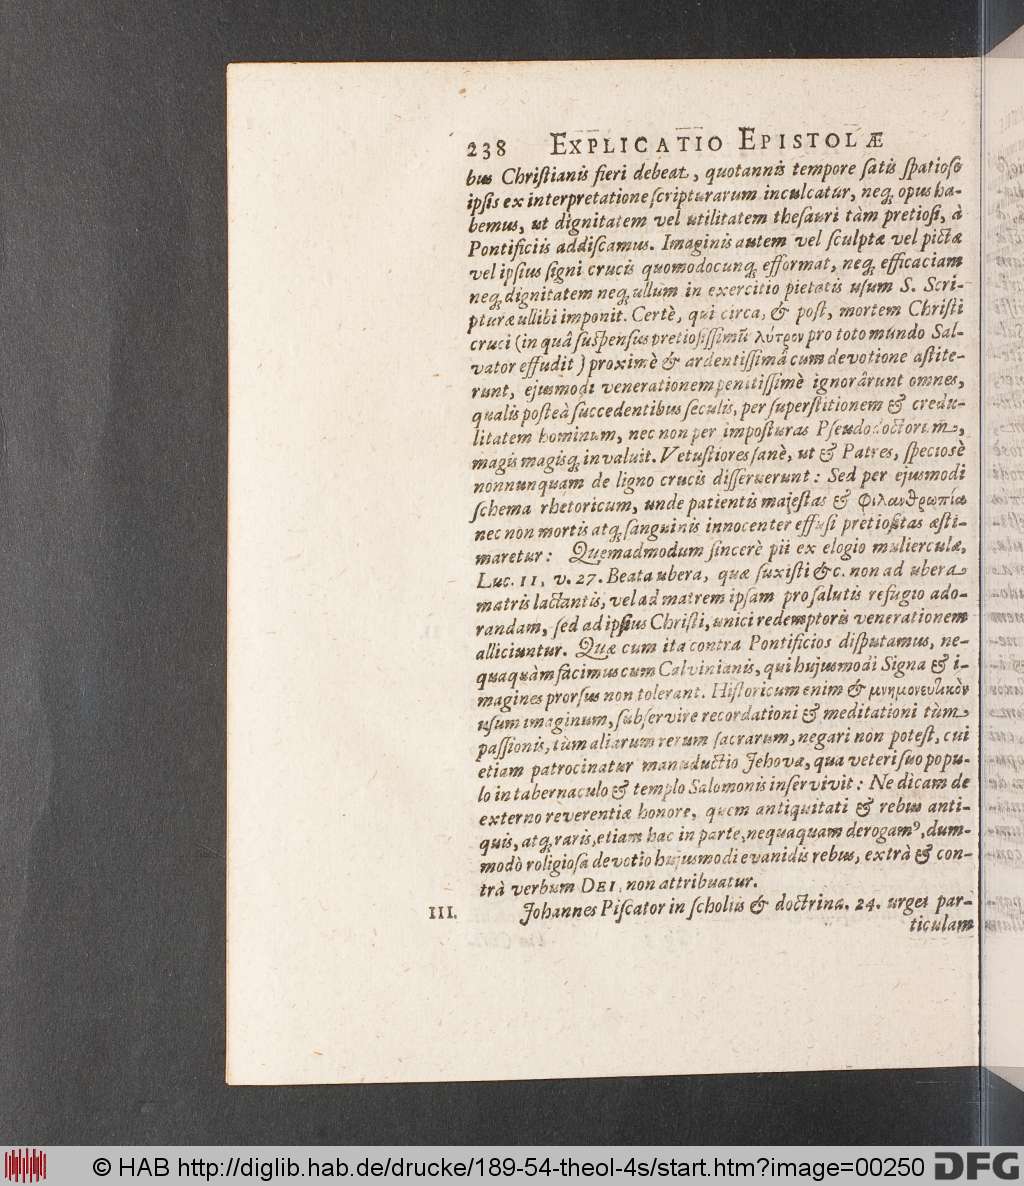 238 EXPLICATIO EPISTOLÆ
bus Christianis fieri debeat, quotannis tempore satis spatioso
ipsis ex interpretatione scripturarum inculcatur, neq; opus ha-
bemus, ut dignitatem vel utilitatem thesauri tàm pretiosi, à
Pontificiis addiscamus. Imaginis autem vel sculptæ vel pictæ
vel ipsius signi crucis quomodocunq; efformat, neq; efficaciam
neq; dignitatem neq; ullum in exercitio pietatis usum S. Scri-
ptura ullibi imponit. Certè, qui circa, & post, mortem Christi
cruci (in quâ suspensus pretiosissimũ λύτρον pro toto mundo Sal-
vator effudit) proximè & ardentissimâ cum devotione astite-
runt, ejusmodi venerationem penitissimè ignorârunt omnes,
qualis posteà succedentibus seculis, per superstitionem & credu-
litatem hominum, nec non per imposturas Pseudodoctorum,
magis magisq; invaluit. Vetustiores sanè, ut & Patres, speciosè
nonnunquam de ligno crucis disseruerunt: Sed per ejusmodi
schema rhetoricum, unde patientis majestas & φιλανθρωπία
nec non mortis atq; sanguinis innocenter effusi pretiositas æsti-
maretur: Quemadmodum sincerè pii ex elogio mulierculæ,
Luc. 11, v. 27. Beata ubera, quæ suxisti &c. non ad ubera
matris lactantis, vel ad matrem ipsam pro salutis refugio ado-
randam, sed ad ipsius Christi, unici redemptoris venerationem
alliciuntur. Quæ cum ita contra Pontificios disputamus, ne-
quaquàm facimus cum Calvinianis, qui hujusmodi Signa & i-
magines prorsus non tolerant. Historicum enim & μνημονευτικὸν
usum imaginum, subservire recordationi & meditationi tùm
passionis, tùm aliarum rerum sacrarum, negari non potest, cui
etiam patrocinatur manuductio Jehovæ, qua veteri suo popu-
lo in tabernaculo & templo Salomonis inservivit: Ne dicam de
externo reverentiæ honore, quem antiquitati & rebus anti-
quis, atq; raris, etiam hac in parte, nequaquam derogamꝰ, dum-
modò roligiosa devotio hujusmodi evanidis rebus, extrà & con-
trà verbum DEI, non attribuatur.
III. Johannes Piscator in scholiis & doctrina. 24. urget par-
ticulam
© HAB http://diglib.hab.de/drucke/189-54-theol-4s/start.htm?image=00250 DFG